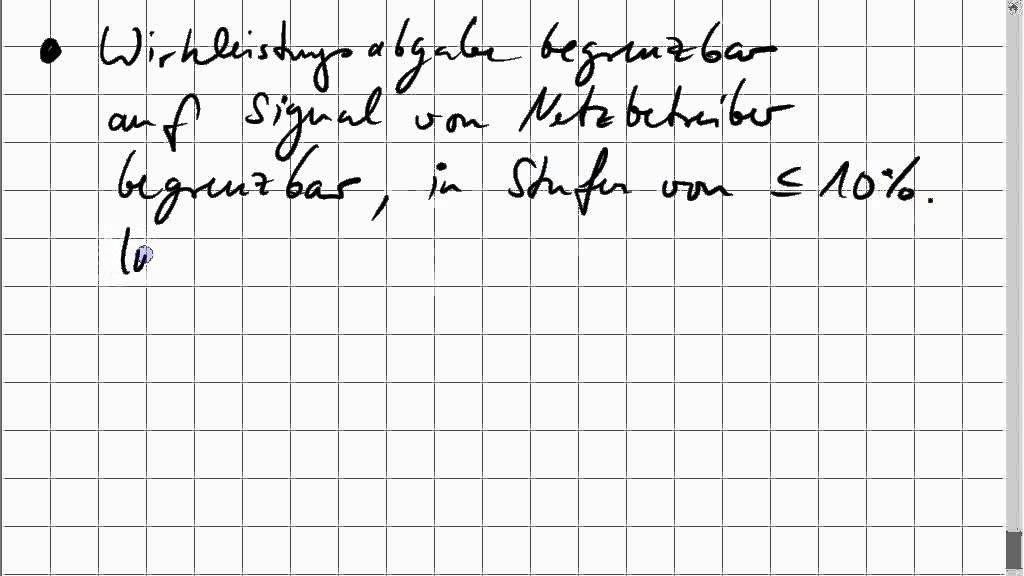 • Wirkleistungsabgabe begrenzbar
auf Signal von Netzbetreiber
begrenzbar, in Stufen von ≤ 10%.